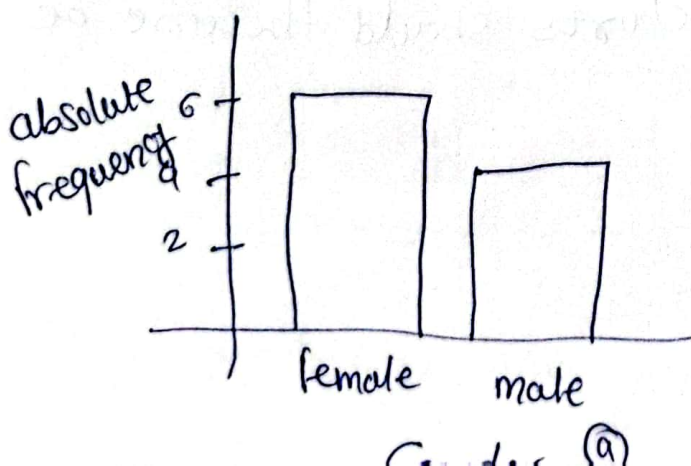 absolute
frequency
6
4
2
female male
Gender (a)